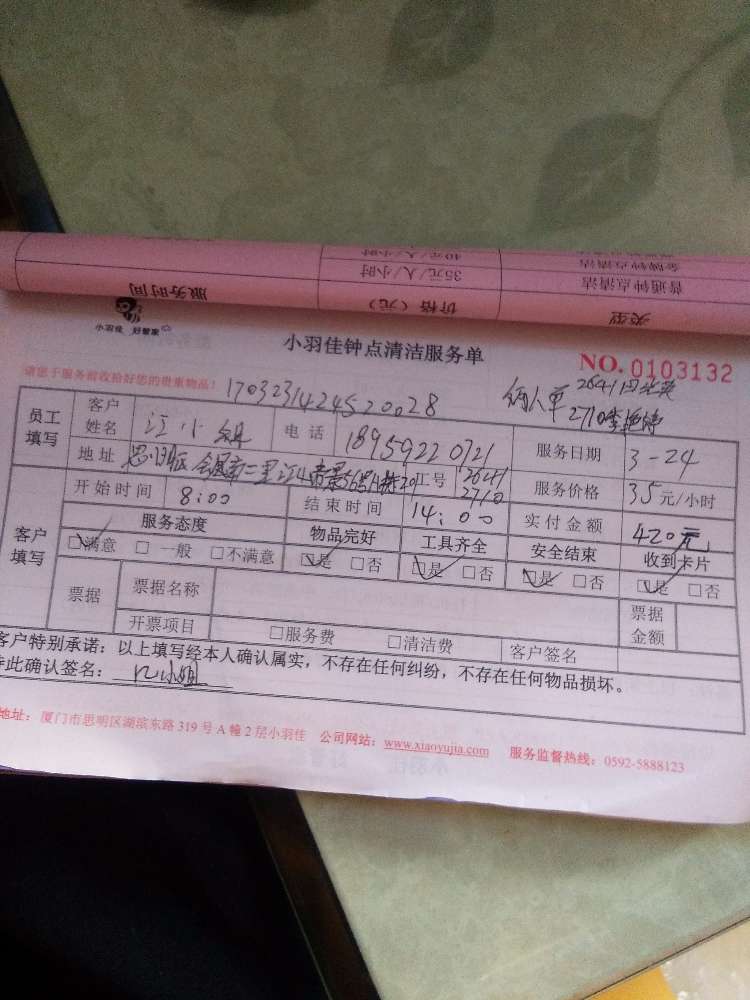 服务时间 价格（元） 类型
35元/人/小时 普通钟点清洁
40元/人/小时 金牌钟点清洁
小羽佳 好管家
小羽佳钟点清洁服务单
NO. 0103132
请您于服务前收拾好您的贵重物品！
1703231424520028
俩人单 2641
2710
员工填写 客户姓名 江小姐 电话 18959220721 服务日期 3-24
地址 思明区 工号 2641 2710 服务价格 35元/小时
客户填写 开始时间 8:00 结束时间 14:00 实付金额 420元
服务态度 物品完好 工具齐全 安全结束 收到卡片
□满意 □一般 □不满意 □是 □否 □是 □否 □是 □否 □是 □否
票据 票据名称 票据金额
开票项目 □服务费 □清洁费 客户签名
客户特别承诺：以上填写经本人确认属实，不存在任何纠纷，不存在任何物品损坏。
特此确认签名：江小姐
地址：厦门市思明区湖滨东路319号A幢2层小羽佳 公司网站：www.xiaoyujia.com 服务监督热线：0592-5888123